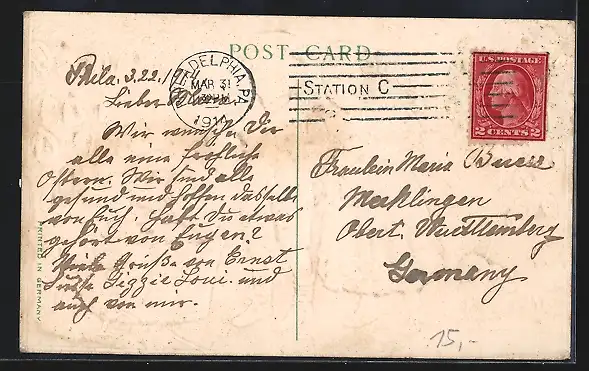 POST CARD
Phila. 3.22.19
PHILADELPHIA, PA.
MAR 31
STATION C
U.S. POSTAGE
2 CENTS 2
Lieber
Wir wünsche Dir
alle eine fröhliche
Ostern. Wir sind alle
gesund und hoffen dasselbe
von Euch. Hast Du etwas
gehört von Eugen?
Viele Grüße von Ernst
Lizzie Loui. und
auch von mir.
Fräulein Maria
Mecklingen
Obert. Württemberg
Germany
15,-
PRINTED IN GERMANY